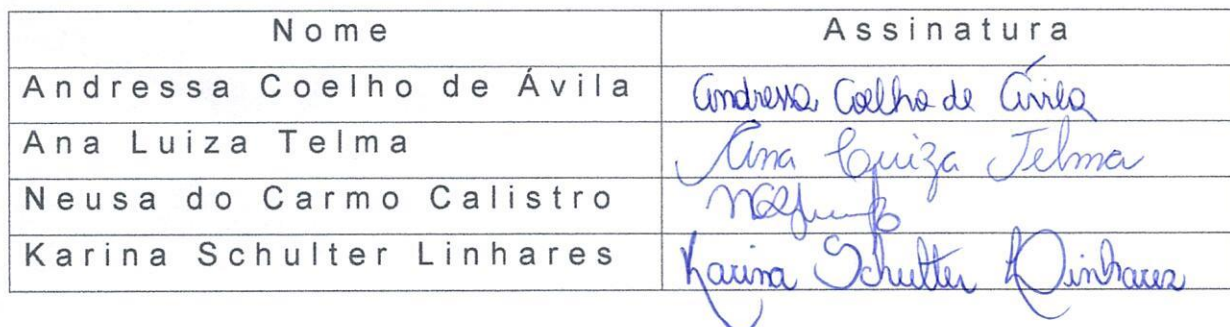 Nome Assinatura
Andressa Coelho de Ávila Andressa Coelho de Ávila
Ana Luiza Telma Ana Luiza Telma
Neusa do Carmo Calistro
Karina Schulter Linhares Karina Schulter Linhares